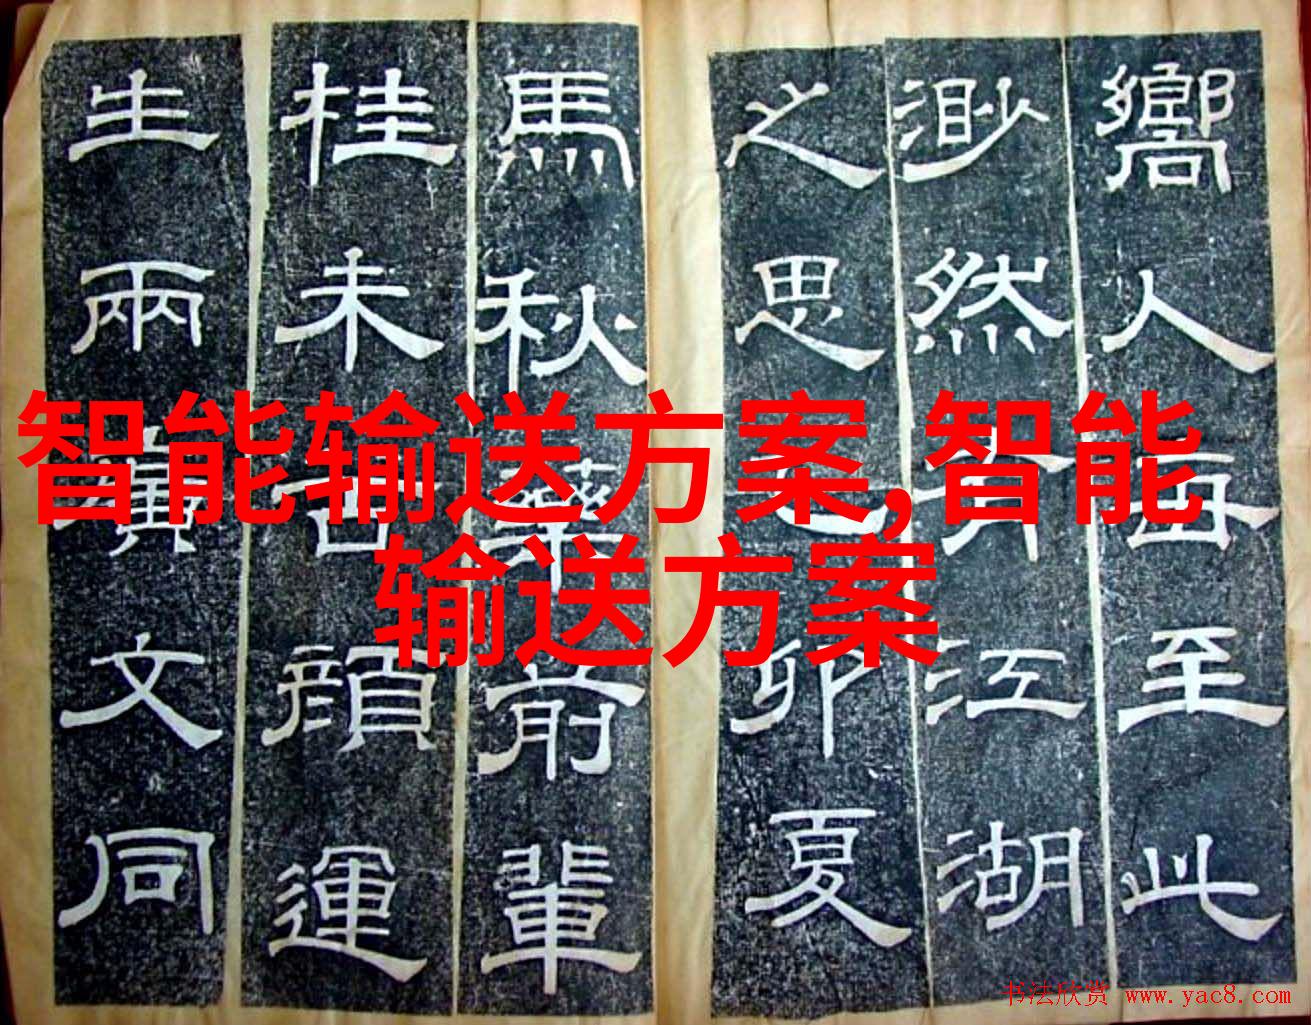 智能输送方案,智能
输送方案
嚮人至此
渺然江湖
之思乙卯夏
馬秋藥前輩
桂未谷顏運
生兩漢文同
书法欣赏 www.yac8.com